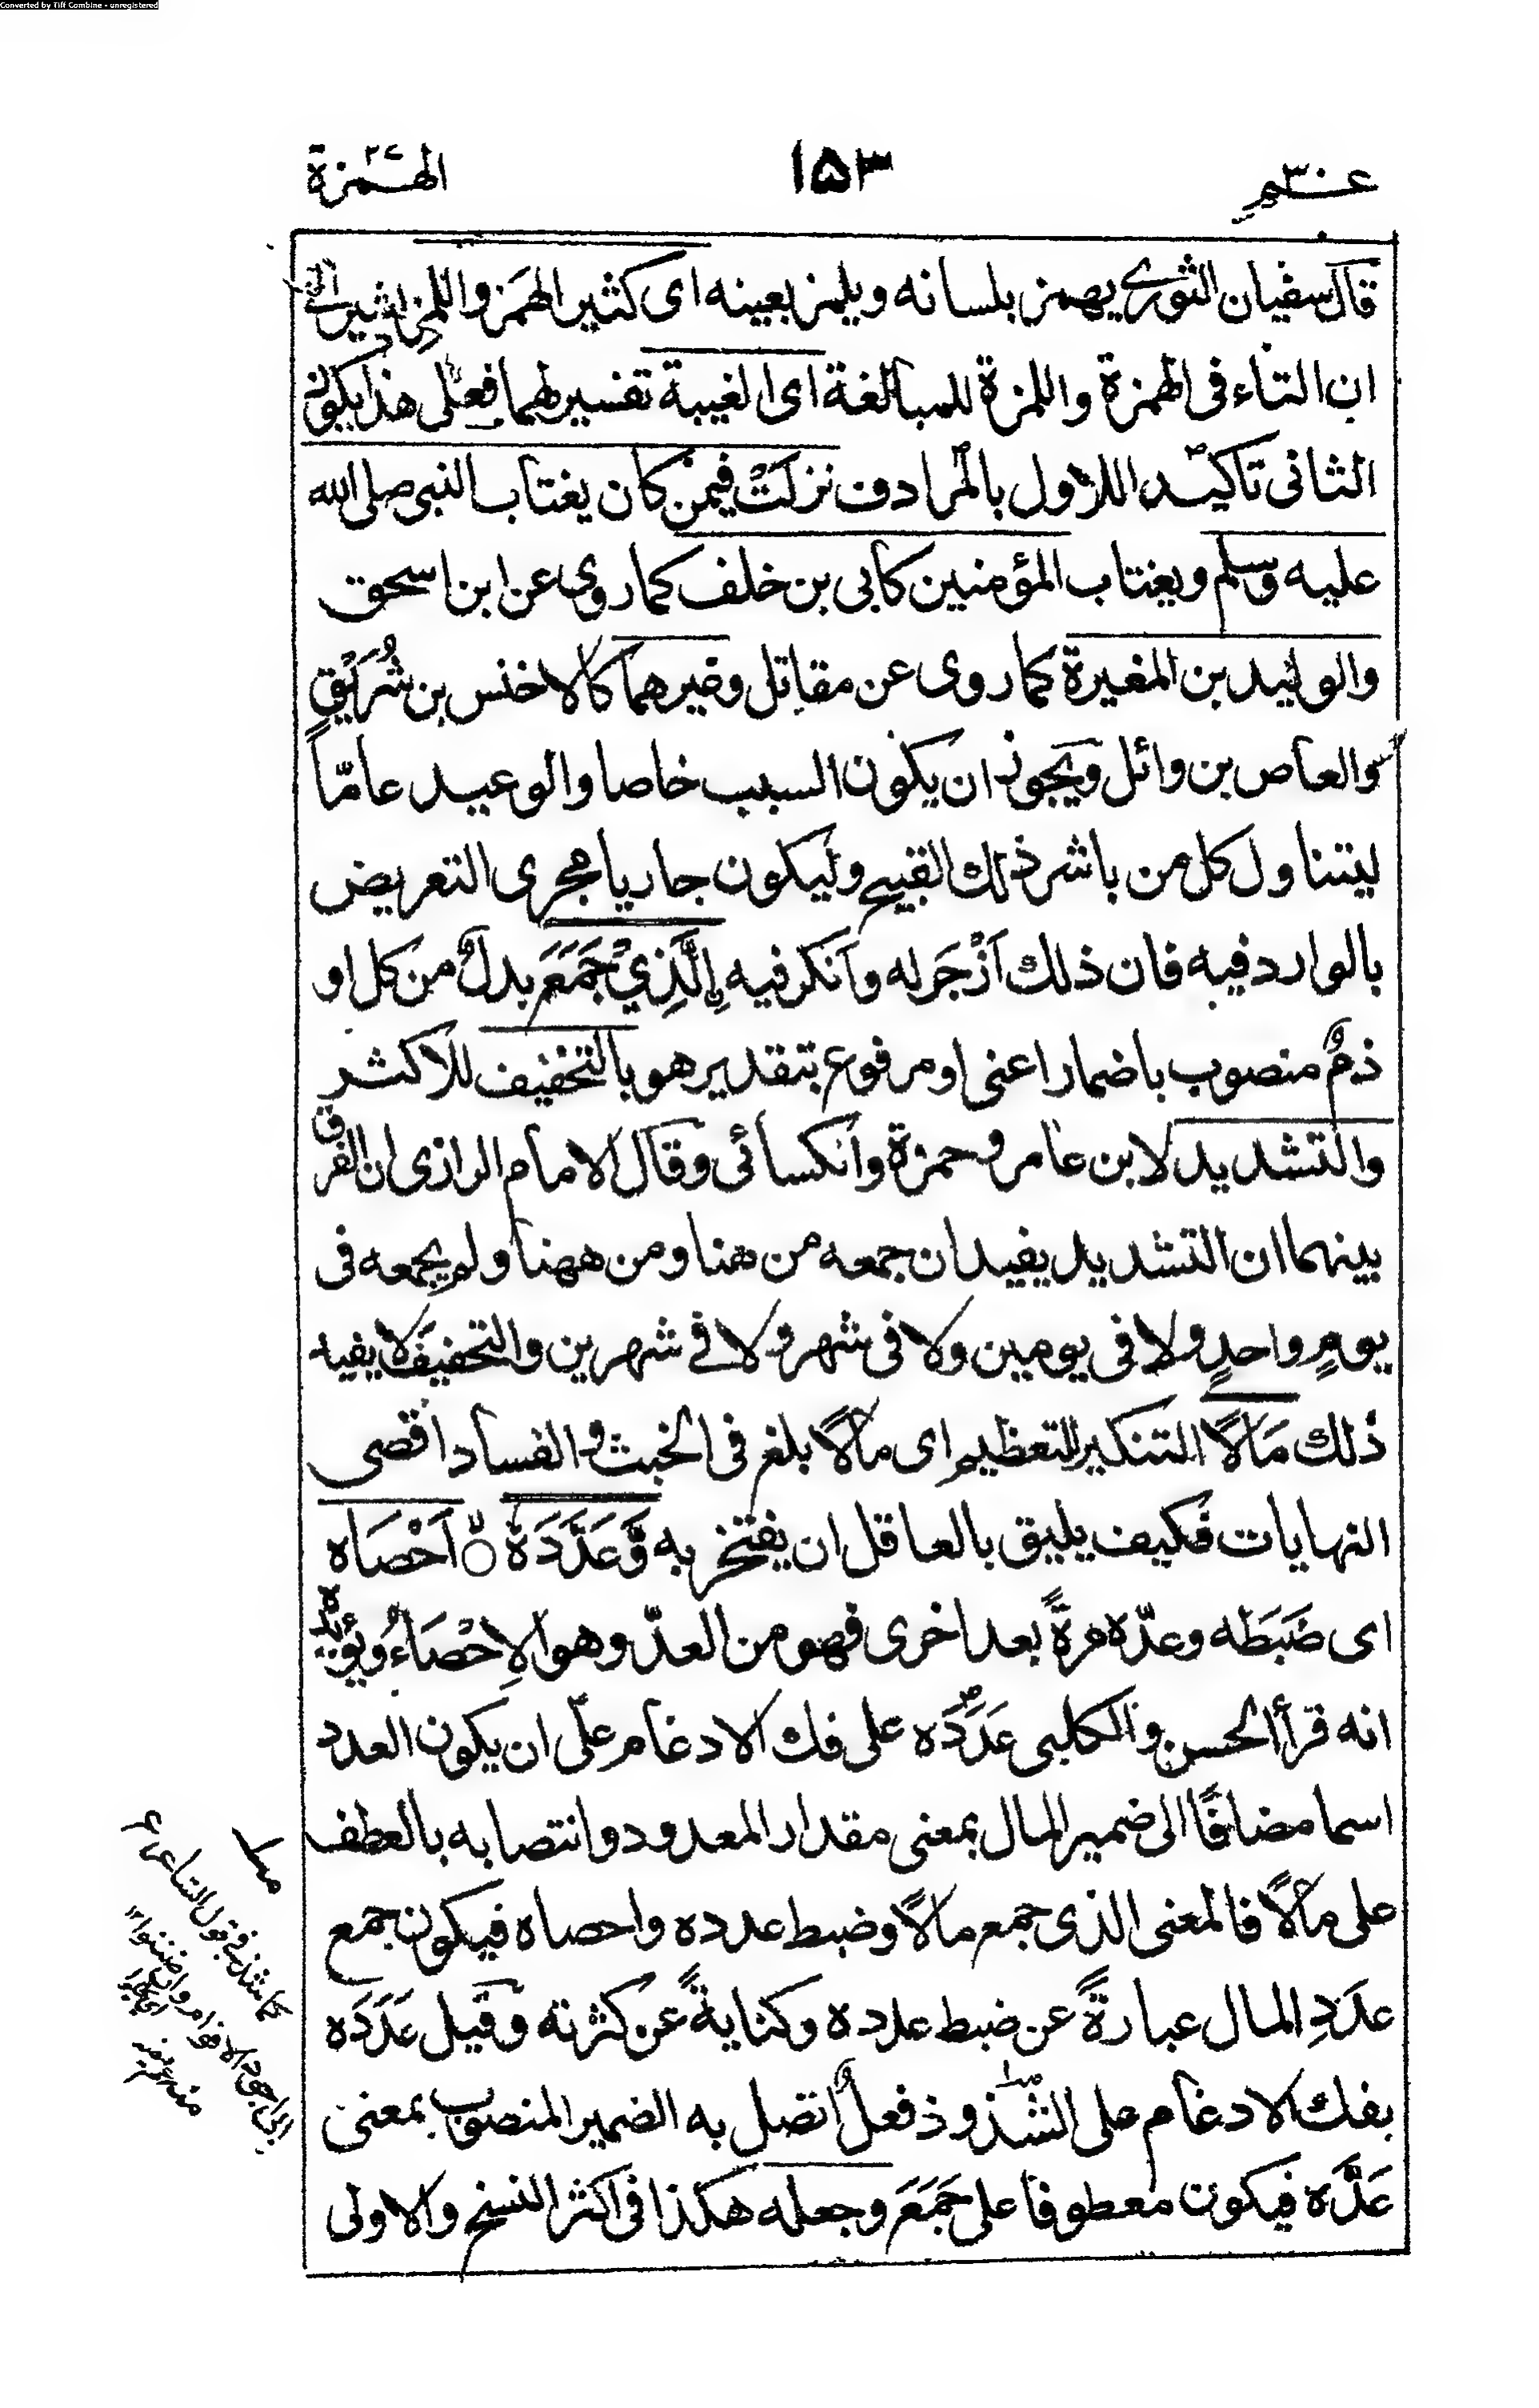 Converted by Tiff Combine - unregistered
عم ٣٠ ١٥٣ الهمزة
قال سفيان الثوري يهمز بلسانه ويلمز بعينه اى كثير الهمز واللمز اشير الى
ان التاء فى الهمزة واللمزة للمبالغة اى الغيبة تفسير لهما فعلى هذا يكون
الثانى تاكيدا للاول بالمرادف نزلت فيمن كان يغتاب النبى صلى الله
عليه وسلم ويغتاب المؤمنين كابى بن خلف كما روى عن ابن اسحق
والوليد بن المغيرة كما روى عن مقاتل وغيرهما كالاخنس بن شُرَيْقٍ
والعاص بن وائل ويجوز ان يكون السبب خاصا والوعيد عامّاً
ليتناول كل من باشر ذلك القبيح وليكون جاريا مجرى التعريض
بالوارد فيه فان ذلك اَزْجَر له وانكر فيه اِلَّذِيْ جَمَعَ بدلٌ من كل او
ذمٌ منصوب باضمار اعنى او مرفوع بتقدير هو بالتخفيف للاكثر
والتشديد لابن عامر وحمزة والكسائى وقال الامام الرازى ان الفرق
بينهما ان التشديد يفيد ان جمعه من هنا ومن ههنا ولم يجمعه فى
يومٍ واحدٍ ولا فى يومين ولا فى شهر ولا فے شهرين والتخفيف لا يفيد
ذلك مَالًا التنكير للتعظيم اى مالًا بلغ فى الخبث والفساد اقصى
النهايات فكيف يليق بالعاقل ان يفتخر به وَّعَدَّدَهٗ اَحْصَاه
اى ضَبَطَه وعدّه مرةً بعد اخرى فهو من العدّ وهو الاِحْصَاءُ ويؤيده
انه قرأ الحسن والكلبى عَدَدَه على فك الادغام على ان يكون العدد
اسما مضافًا الى ضمير المال بمعنى مقدار المعدود وانتصابه بالعطف
على مالًا فالمعنى الذى جمع مالًا وضبط عدده واحصاه فيكون جمع
عدَدِ المال عبارةً عن ضبط عدده وكنايةً عن كثرته وقيل عَدَدَه
بفك الادغام على الشذوذ فعلٌ اتصل به الضمير المنصوب بمعنى
عَدَّه فيكون معطوفا على جَمَعَ وجعله هكذا فى اكثر النسخ والاولى
كما شذ فى قول الشاعر ع
انى اجود لاقوام وان ضننوا